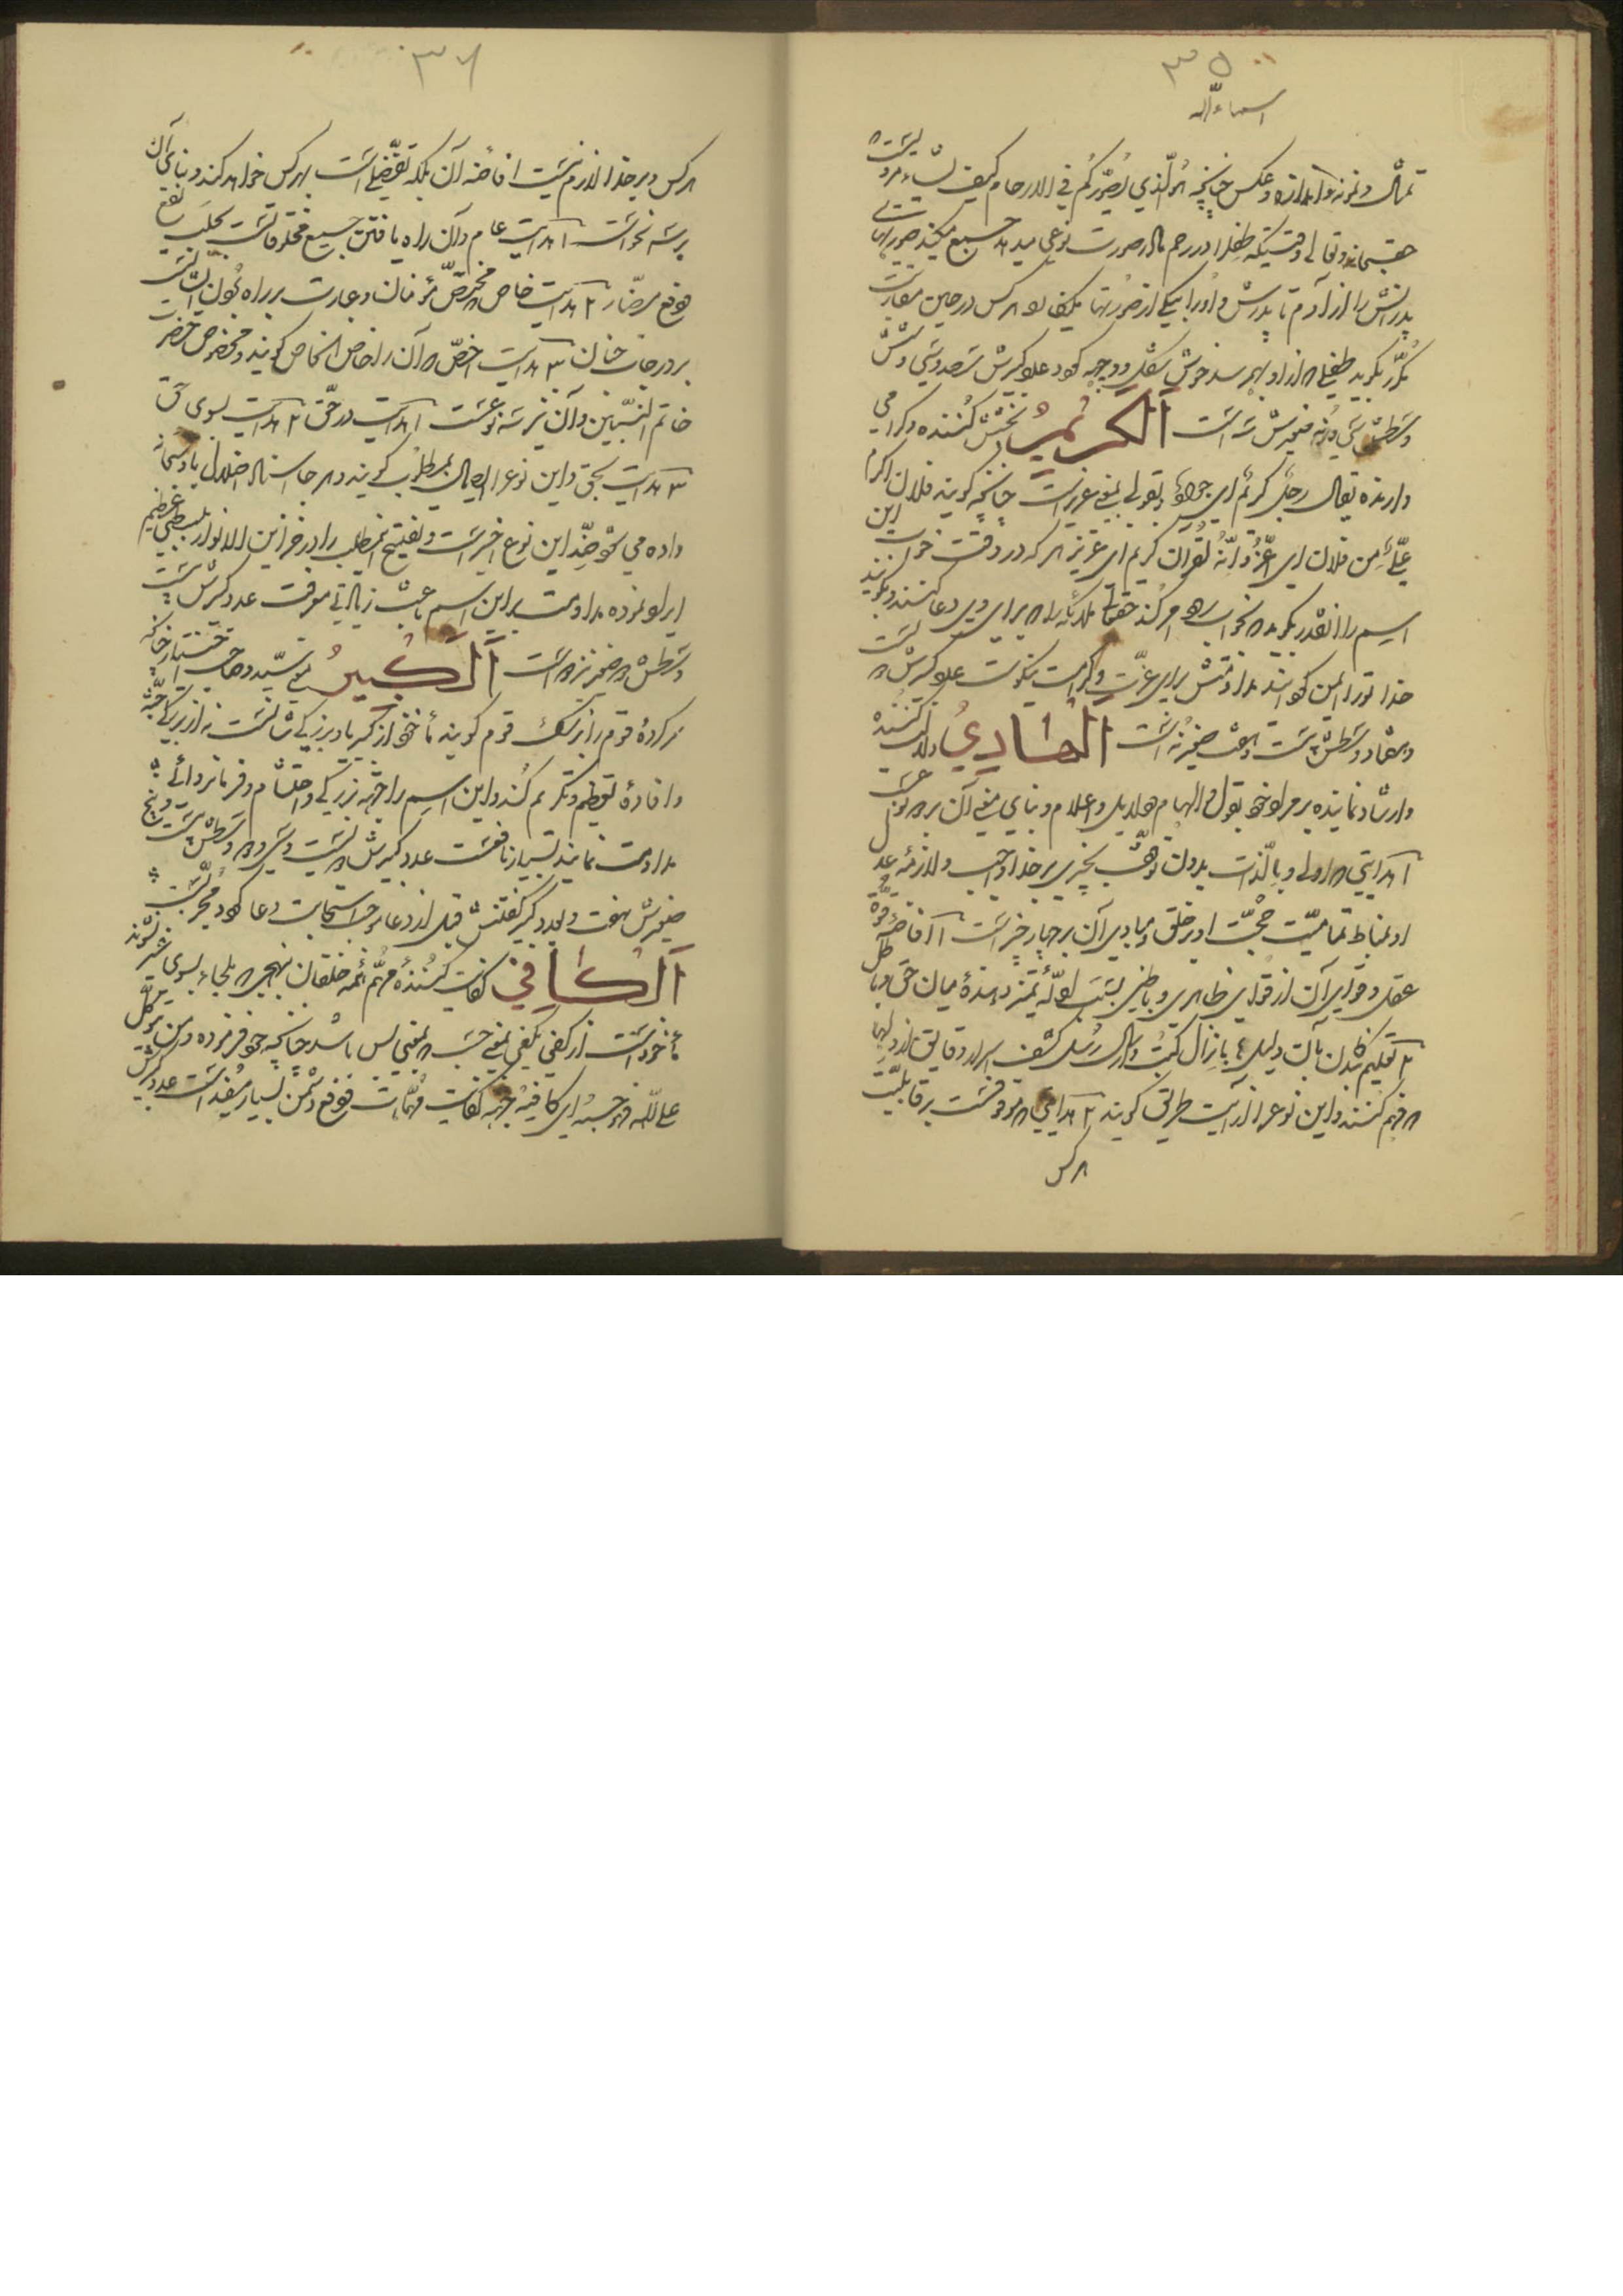 ۳۵
اسماءالله
تمثال و نمونه و اندازه و عکس چنانچه هو الّذي یُصوّرکُم في الارحام کیف یشاء
حقسبحانه و تعالی وقتیکه طفل را در رحم مادر صورت نوعی میدهد جمیع
پدرانش را از آدم تا پدرش و او را بیکی از صورتها میکند هر کس در حین مقاربت
مکرّر بگوید طفلی از او بهم رسد خوش شکل و وجیه شود عدد کبیرش سیصد و سی و شش
وسطش سی و نه صغیرش سه است الکریمُ بخشش کننده و گرامی
دارنده یقال رجل کریم ای جواد و بقولی بمعنی عزیز است چنانچه گویند فلان اکرم
عَلَيَّ مِن فلان ای اعزّ و انّه لقرآن کریم ای عزیز هر که در وقت خواب این
اسم را انقدر بگوید که بخواب رود امر کند حقتعالی ملائکه را که برای وی دعا کنند و بگویند
خدا تو را ایمن گرداند مداومتش برای عزّت و کرامت نیکوست عدد کبیرش
و هفتاد وسطش بیست و هفت صغیر نه است الهاديُ دلالت کننده
و ارشاد نماینده بر مراد خود بقول و الهام و دلایل و اعلام و بنای معنی آن بر دو نوع است
۱ هدایتی اولی و بالذّات بدون توقّف بچیزی بر خدا واجب و لازمه عدل
او بمناط تمامیّت حجّت او بر خلق و مبادی آن بر چهار چیز است ۱ افاضهٔ قوّه
عقل و قوای آن از قوای ظاهری و باطنی ۲ نصب ادلّهٔ تمیز دهندهٔ میان حق و باطل
۳ تعلیم نمودن بآن دلیل ۴ بانزال کتب و ارسال رُسُل کشف اسرار و دقایق از دلها
فهم کنند و این نوع را ارائت طریق گویند ۲ هدایتی موقوفست بر قابلیّت
هر کس
۳۶
هر کس و بر خدا لازم نیست افاضه آن بلکه تفضّلی است بهر کس خواهد کند و بنای آن
بر سه نحو است ۱ هدایت عام و آن راه یافتن جمیع مخلوقاتست بجلب نفع
و دفع مضارّ ۲ هدایت خاص مختصّ مؤمنان و عبارت براه نمودن ایشانست
بدرجات جنان ۳ هدایت اخصّ آن را خاص الخاص گویند و مخصوص حضرت
خاتم النبیّین و آن نیز سه نوعست ۱ هدایت در حق ۲ هدایت بسوی حق
۳ هدایت بحق و این نوع را ایصال بمطلوب گویند و هر جا اسناد اضلال باو سبحانه
داده می شود ضدّ این نوع اخیر است و تفتیح این مطلب را در خزاین الانوار ببسطی عظیم
ایراد نموده مداومت بر این اسم باعث زیادتی معرفت عدد کبرش بیست
وسطش صغیر نیز است الکبیرُ یعنی سیّد و صاحب اختیار چنانکه
سرکردهٔ قوم را بزرگ قوم گویند مأخوذ از کبریا و بزرگی شانست نه از بزرگی جثّه
و افادهٔ تعظیم و تکریم کند و این اسم را جهة بزرگی و احتشام و فرمانروائی
مداومت نمایند بسیار نافعست عدد کبیرش دویست و سی و دو وسطش بیست و پنج
صغیرش هفت و بعدد کبیر گفتنش قبل از دعا موجب استجابت دعا گردد مجرّبست
الکافي کفایت کنندهٔ مهمّ همه خلقان بنهجی که ملجاء بسوی غیر نشوند
مأخوذ است از کفی یکفی بمعنی حسب بمعنی بس باشد چنانچه خود فرموده و من یتوکّل
علی اللّه فهو حسبه ای کافیه جهة کفایت مهمّات و دفع دشمن بسیار مفید است عدد کبیرش